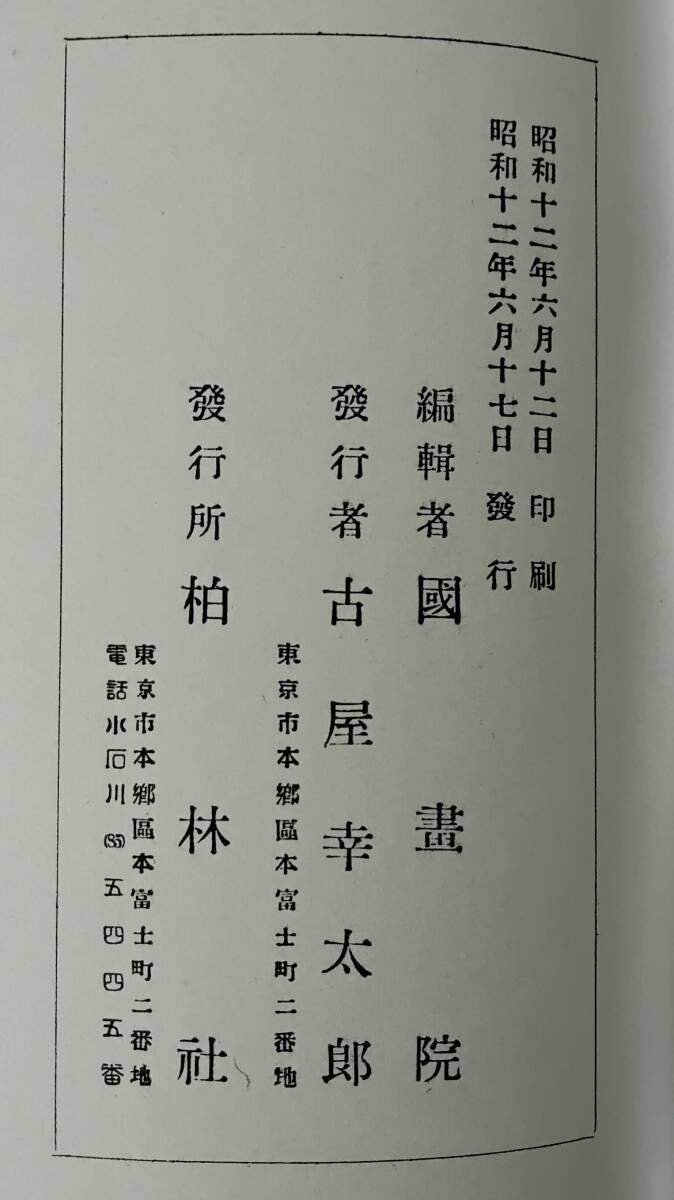 昭和十二年六月十二日 印刷
昭和十二年六月十七日 發行
編輯者 國畫院
發行者 古屋幸太郎
東京市本鄕區本富士町二番地
發行所 柏林社
東京市本鄕區本富士町二番地
電話小石川(85)五四四五番